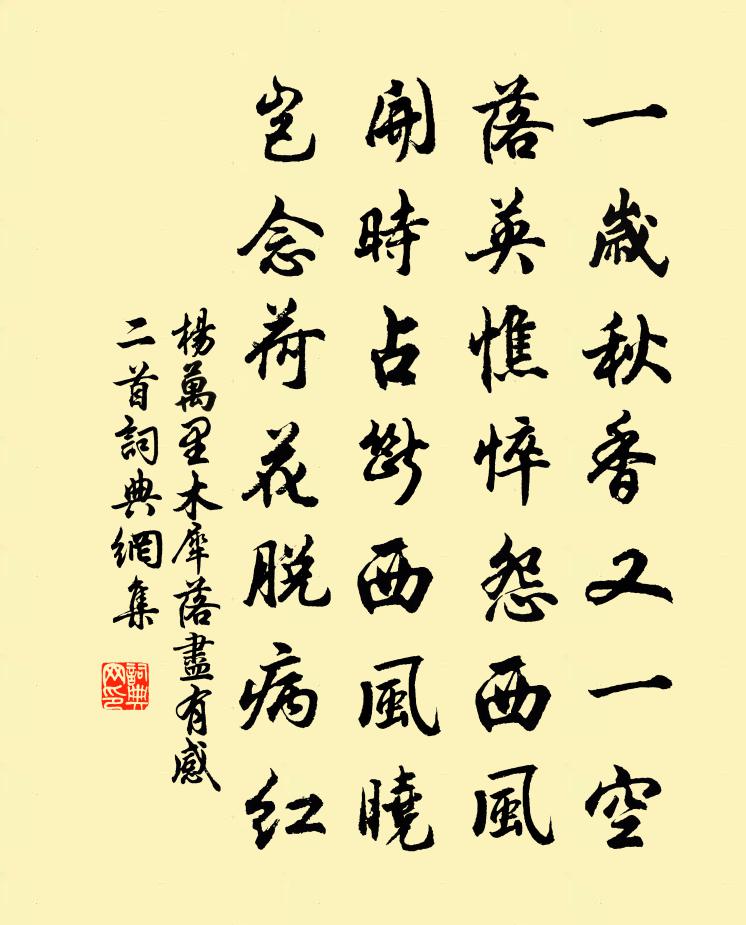 一歳秋香又一空
落英憔悴怨西風
開時占斷西風曉
豈念荷花脱病紅
楊萬里木犀落盡有感
二首詞典網集
詞典
网印